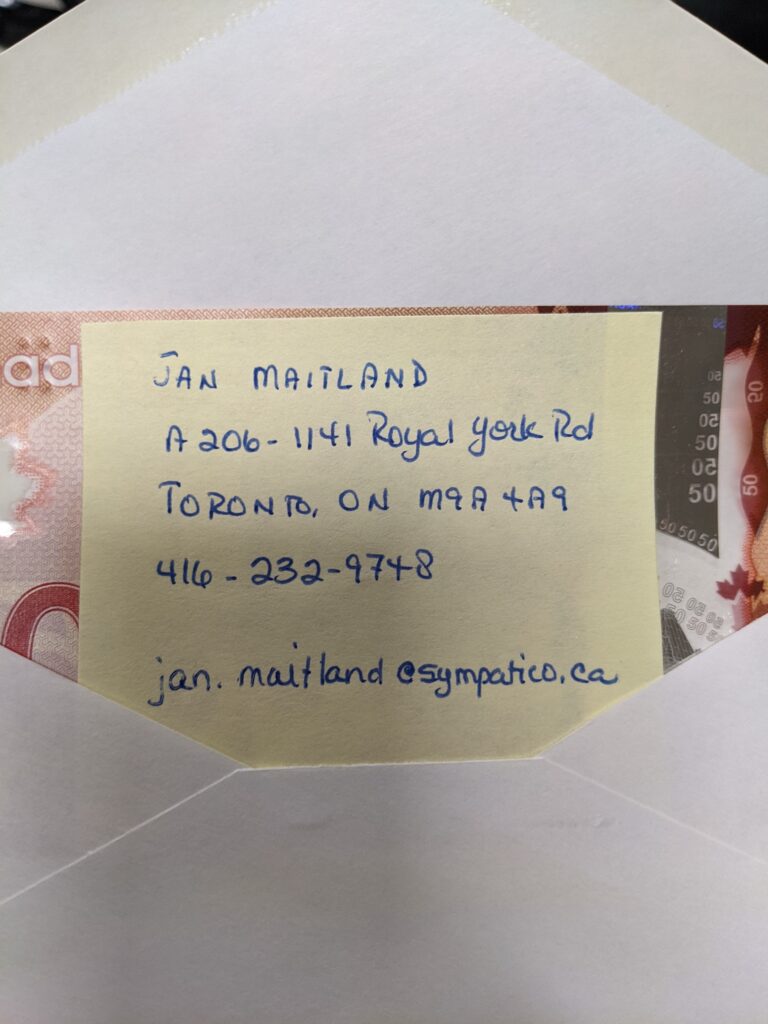 äd
JAN MAITLAND
A206-1141 Royal York Rd
TORONTO, ON M9A 4A9
416-232-9748
jan.maitland@sympatico.ca
50
50
50
50
50
50
50
50 50 50
50 50 50
50 50 50